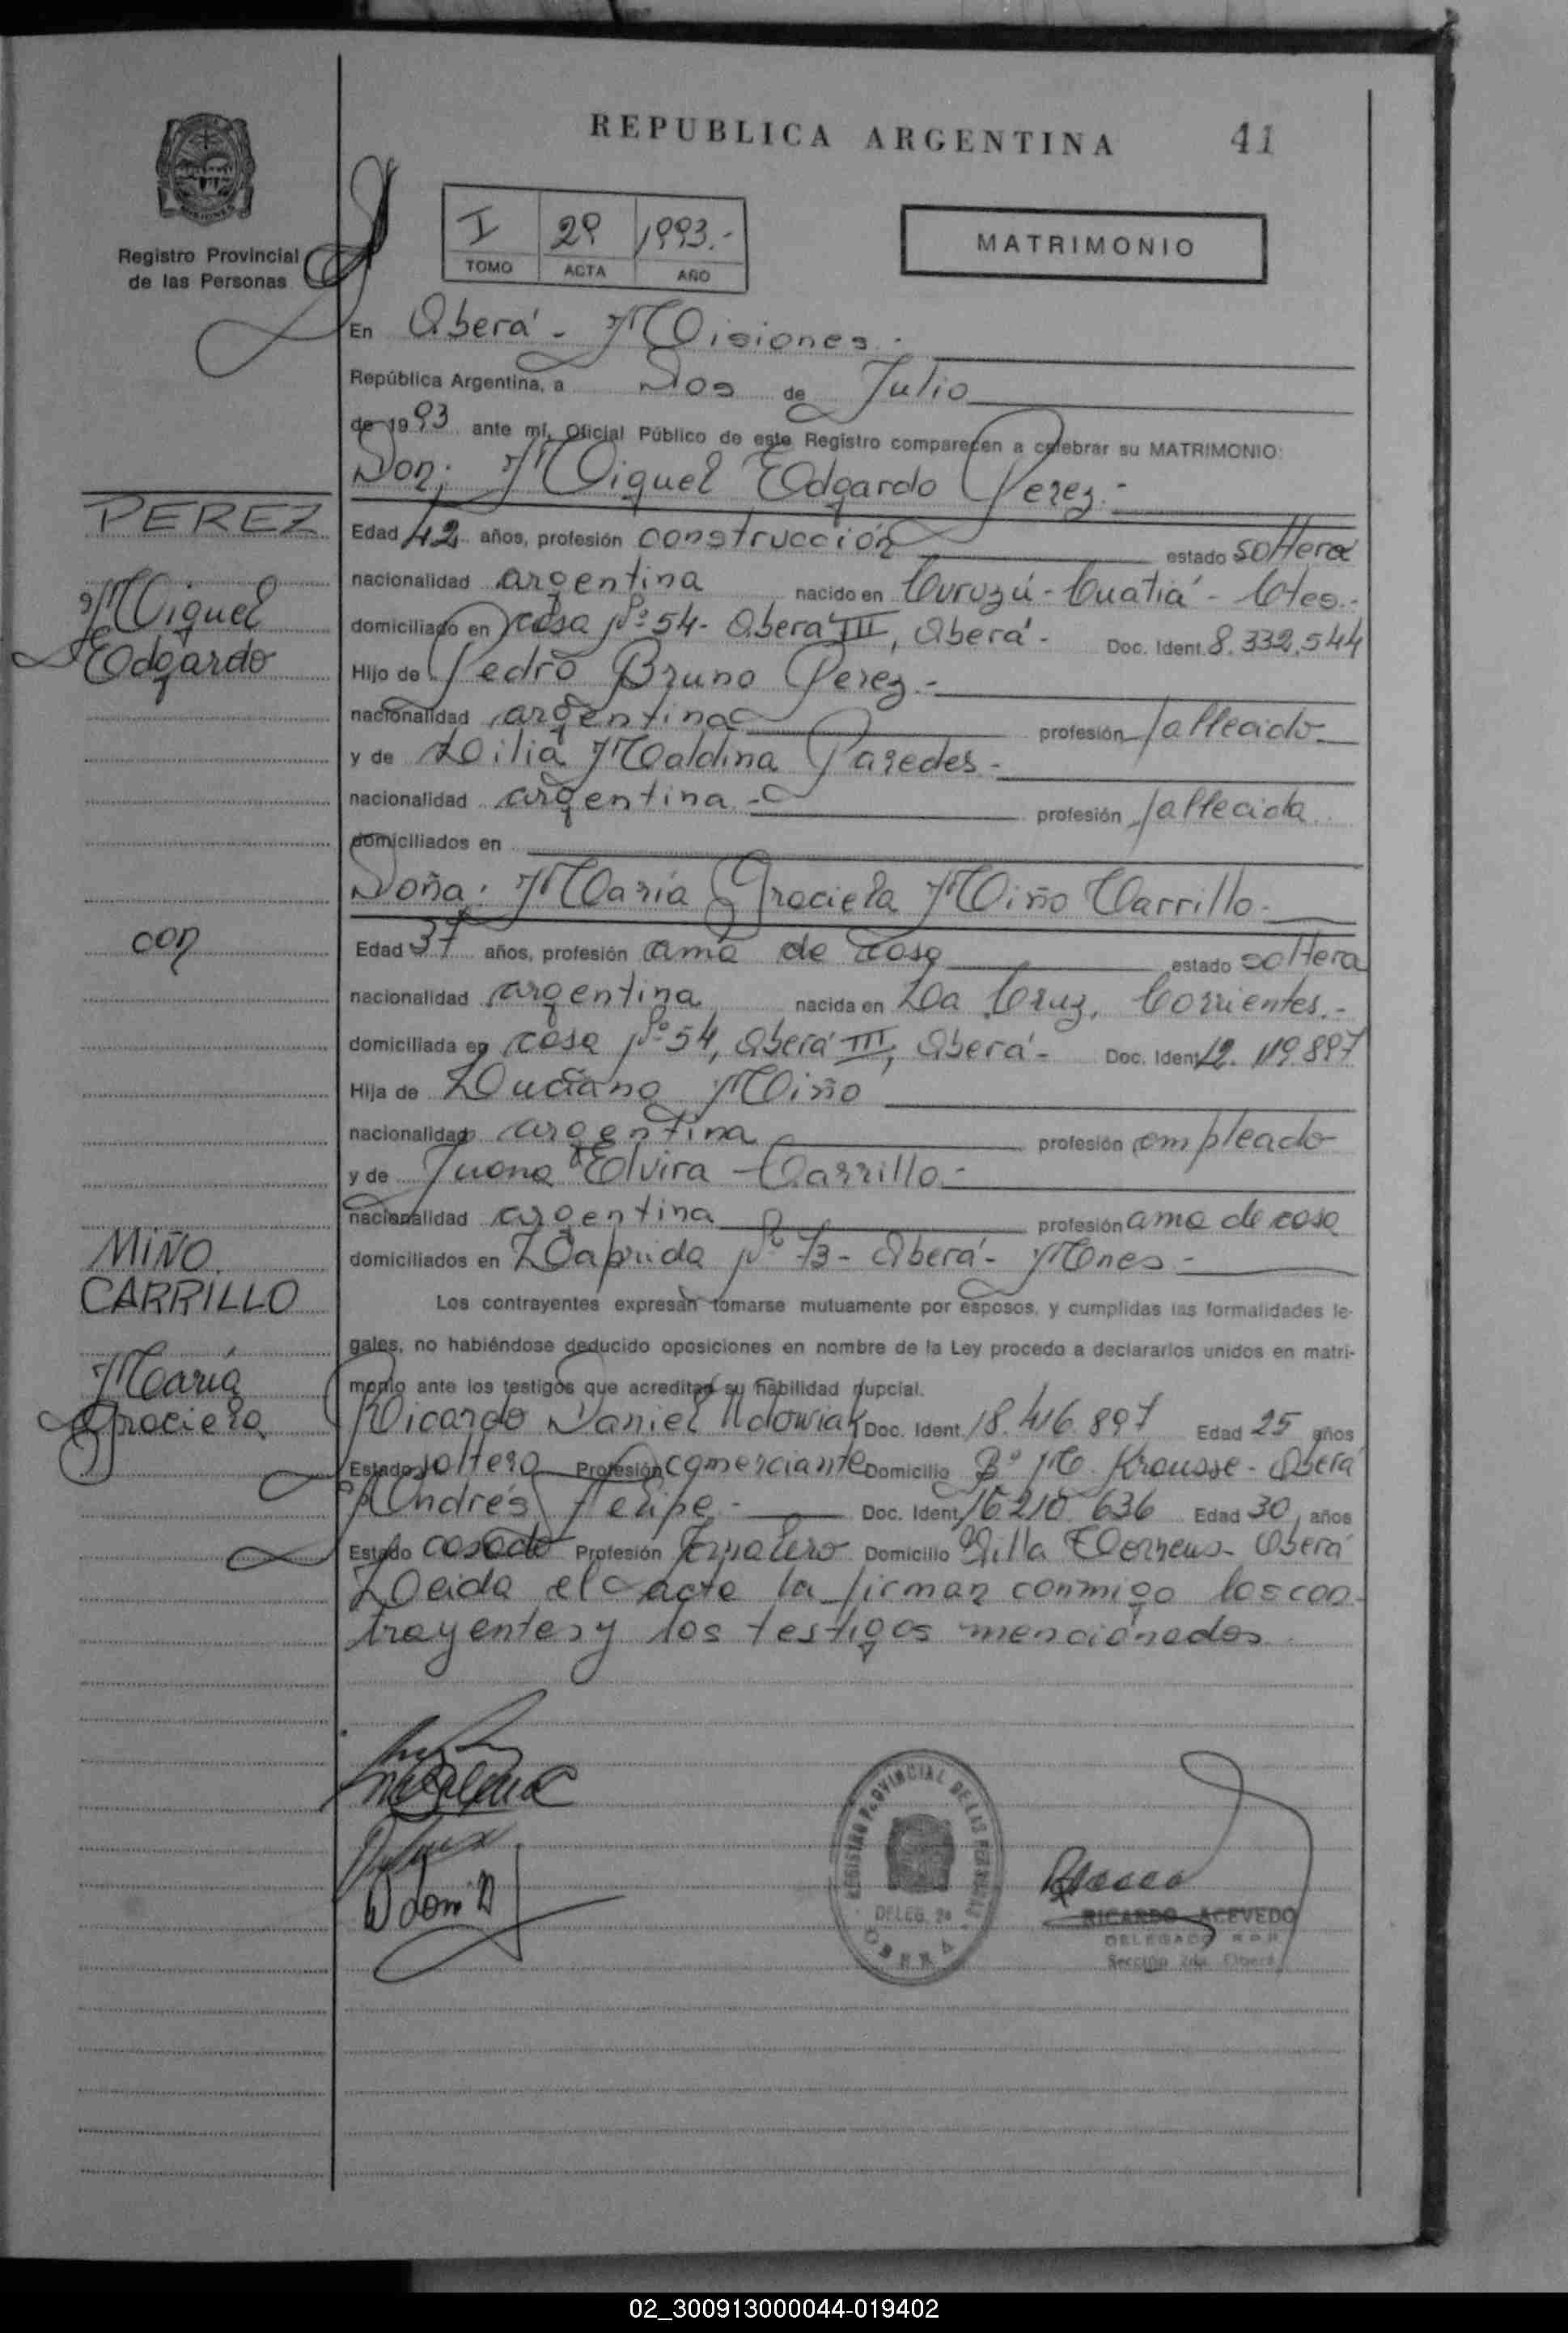 REPUBLICA ARGENTINA
41
Registro Provincial
de las Personas
I 29 1993.-
TOMO ACTA AÑO
MATRIMONIO
En Oberá - Misiones.
República Argentina, a Dos de Julio
de 1993 ante mí, Oficial Público de este Registro comparecen a celebrar su MATRIMONIO:
Don: Miguel Edgardo Perez.-
PEREZ
Miguel
Edgardo
Edad 42 años, profesión construcción estado soltero
nacionalidad argentina nacido en Curuzú-Cuatiá - Ctes.-
domiciliado en casa Nº 54- Oberá III, Oberá- Doc. Ident. 8.332.544
Hijo de Pedro Bruno Perez.-
nacionalidad argentina profesión fallecido
y de Lilia Maldina Paredes-
nacionalidad argentina - profesión fallecida
domiciliados en
Doña: María Graciela Miño Carrillo-
con
Edad 37 años, profesión ama de casa estado soltera
nacionalidad argentina nacida en La Cruz, Corrientes.-
domiciliada en casa Nº 54, Oberá III, Oberá- Doc. Ident. 12.119.897
Hija de Luciano Miño
nacionalidad argentina profesión empleado
y de Juana Elvira Carrillo-
nacionalidad argentina profesión ama de casa
domiciliados en Laprida Nº 73- Oberá- Mnes-
MIÑO
CARRILLO
María
Graciela
Los contrayentes expresan tomarse mutuamente por esposos, y cumplidas las formalidades le-
gales, no habiéndose deducido oposiciones en nombre de la Ley procedo a declararlos unidos en matri-
monio ante los testigos que acreditan su habilidad nupcial.
Ricardo Daniel Udowiak Doc. Ident. 18.416.897 Edad 25 años
Estado soltero Profesión comerciante Domicilio Bº M. Krausse- Oberá
Andrés Felipe - Doc. Ident. 16.210.636 Edad 30 años
Estado casado Profesión Jornalero Domicilio Villa Oberá
Leida el acta la firman conmigo los con-
trayentes y los testigos mencionados.
REGISTRO PROVINCIAL DE LAS PERSONAS
DELEG. 2a
OBERA
RICARDO ACEVEDO
DELEGADO R.P.P.
Sección 2da. Oberá
02_300913000044-019402